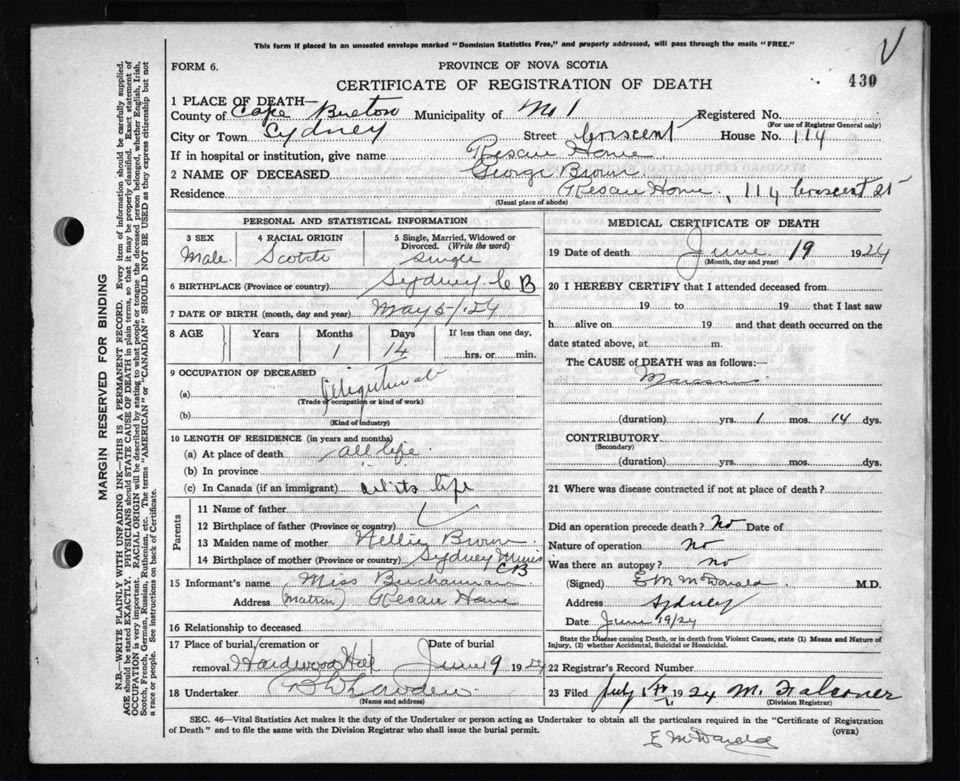 This form if placed in an unsealed envelope marked "Dominion Statistics Free," and properly addressed, will pass through the mails "FREE."
V
FORM 6.
PROVINCE OF NOVA SCOTIA
CERTIFICATE OF REGISTRATION OF DEATH
430
1 PLACE OF DEATH—
County of Cape Breton Municipality of No 1 Registered No.
(For use of Registrar General only)
City or Town Sydney Street Crescent House No. 114
If in hospital or institution, give name Rescue Home
2 NAME OF DECEASED George Brown
Residence Rescue Home, 114 Crescent St
(Usual place of abode)
PERSONAL AND STATISTICAL INFORMATION
3 SEX Male
4 RACIAL ORIGIN Scotch
5 Single, Married, Widowed or Divorced. (Write the word) Single
6 BIRTHPLACE (Province or country) Sydney C B
7 DATE OF BIRTH (month, day and year) May 5/24
8 AGE Years Months Days If less than one day,
1 14 hrs. or min.
9 OCCUPATION OF DECEASED
(a)
(Trade or occupation or kind of work)
(b)
(Kind of industry)
10 LENGTH OF RESIDENCE (in years and months)
(a) At place of death all life
(b) In province
(c) In Canada (if an immigrant) all its life
Parents
11 Name of father
12 Birthplace of father (Province or country)
13 Maiden name of mother Nellie Brown
14 Birthplace of mother (Province or country) Sydney Mines CB
15 Informant's name Miss Buchannan
Address (Matron) Rescue Home
16 Relationship to deceased
17 Place of burial/cremation or removal Hardwood Hill Date of burial June 9 1924
18 Undertaker
(Name and address)
MEDICAL CERTIFICATE OF DEATH
19 Date of death June 19 1924
(Month, day and year)
20 I HEREBY CERTIFY that I attended deceased from
19 to 19 that I last saw
h alive on 19 and that death occurred on the
date stated above, at m.
The CAUSE of DEATH was as follows:—
(duration) yrs. 1 mos. 14 dys.
CONTRIBUTORY
(Secondary)
(duration) yrs. mos. dys.
21 Where was disease contracted if not at place of death?
Did an operation precede death? No Date of
Nature of operation No
Was there an autopsy? No
(Signed) E M McDonald M.D.
Address Sydney
Date June 19/24
State the Disease causing Death, or in death from Violent Causes, state (1) Means and Nature of Injury, (2) whether Accidental, Suicidal or Homicidal.
22 Registrar's Record Number
23 Filed July 1924 M. Falconer
(Division Registrar)
SEC. 46—Vital Statistics Act makes it the duty of the Undertaker or person acting as Undertaker to obtain all the particulars required in the "Certificate of Registration
of Death" and to file the same with the Division Registrar who shall issue the burial permit.
(OVER)
E McDonald
MARGIN RESERVED FOR BINDING
N.B.—WRITE PLAINLY WITH UNFADING INK—THIS IS A PERMANENT RECORD. Every item of information should be carefully supplied.
AGE should be stated EXACTLY. PHYSICIANS should STATE CAUSE OF DEATH in plain terms, so that it may be properly classified. Exact statement of
OCCUPATION is very important. RACIAL ORIGIN will be described by stating to what people or tongue the deceased person belonged, whether English, Irish,
Scotch, French, German, Russian, Ruthenian, etc. The terms "AMERICAN" or "CANADIAN" SHOULD NOT BE USED as they express citizenship but not
a race or people. See instructions on back of Certificate.